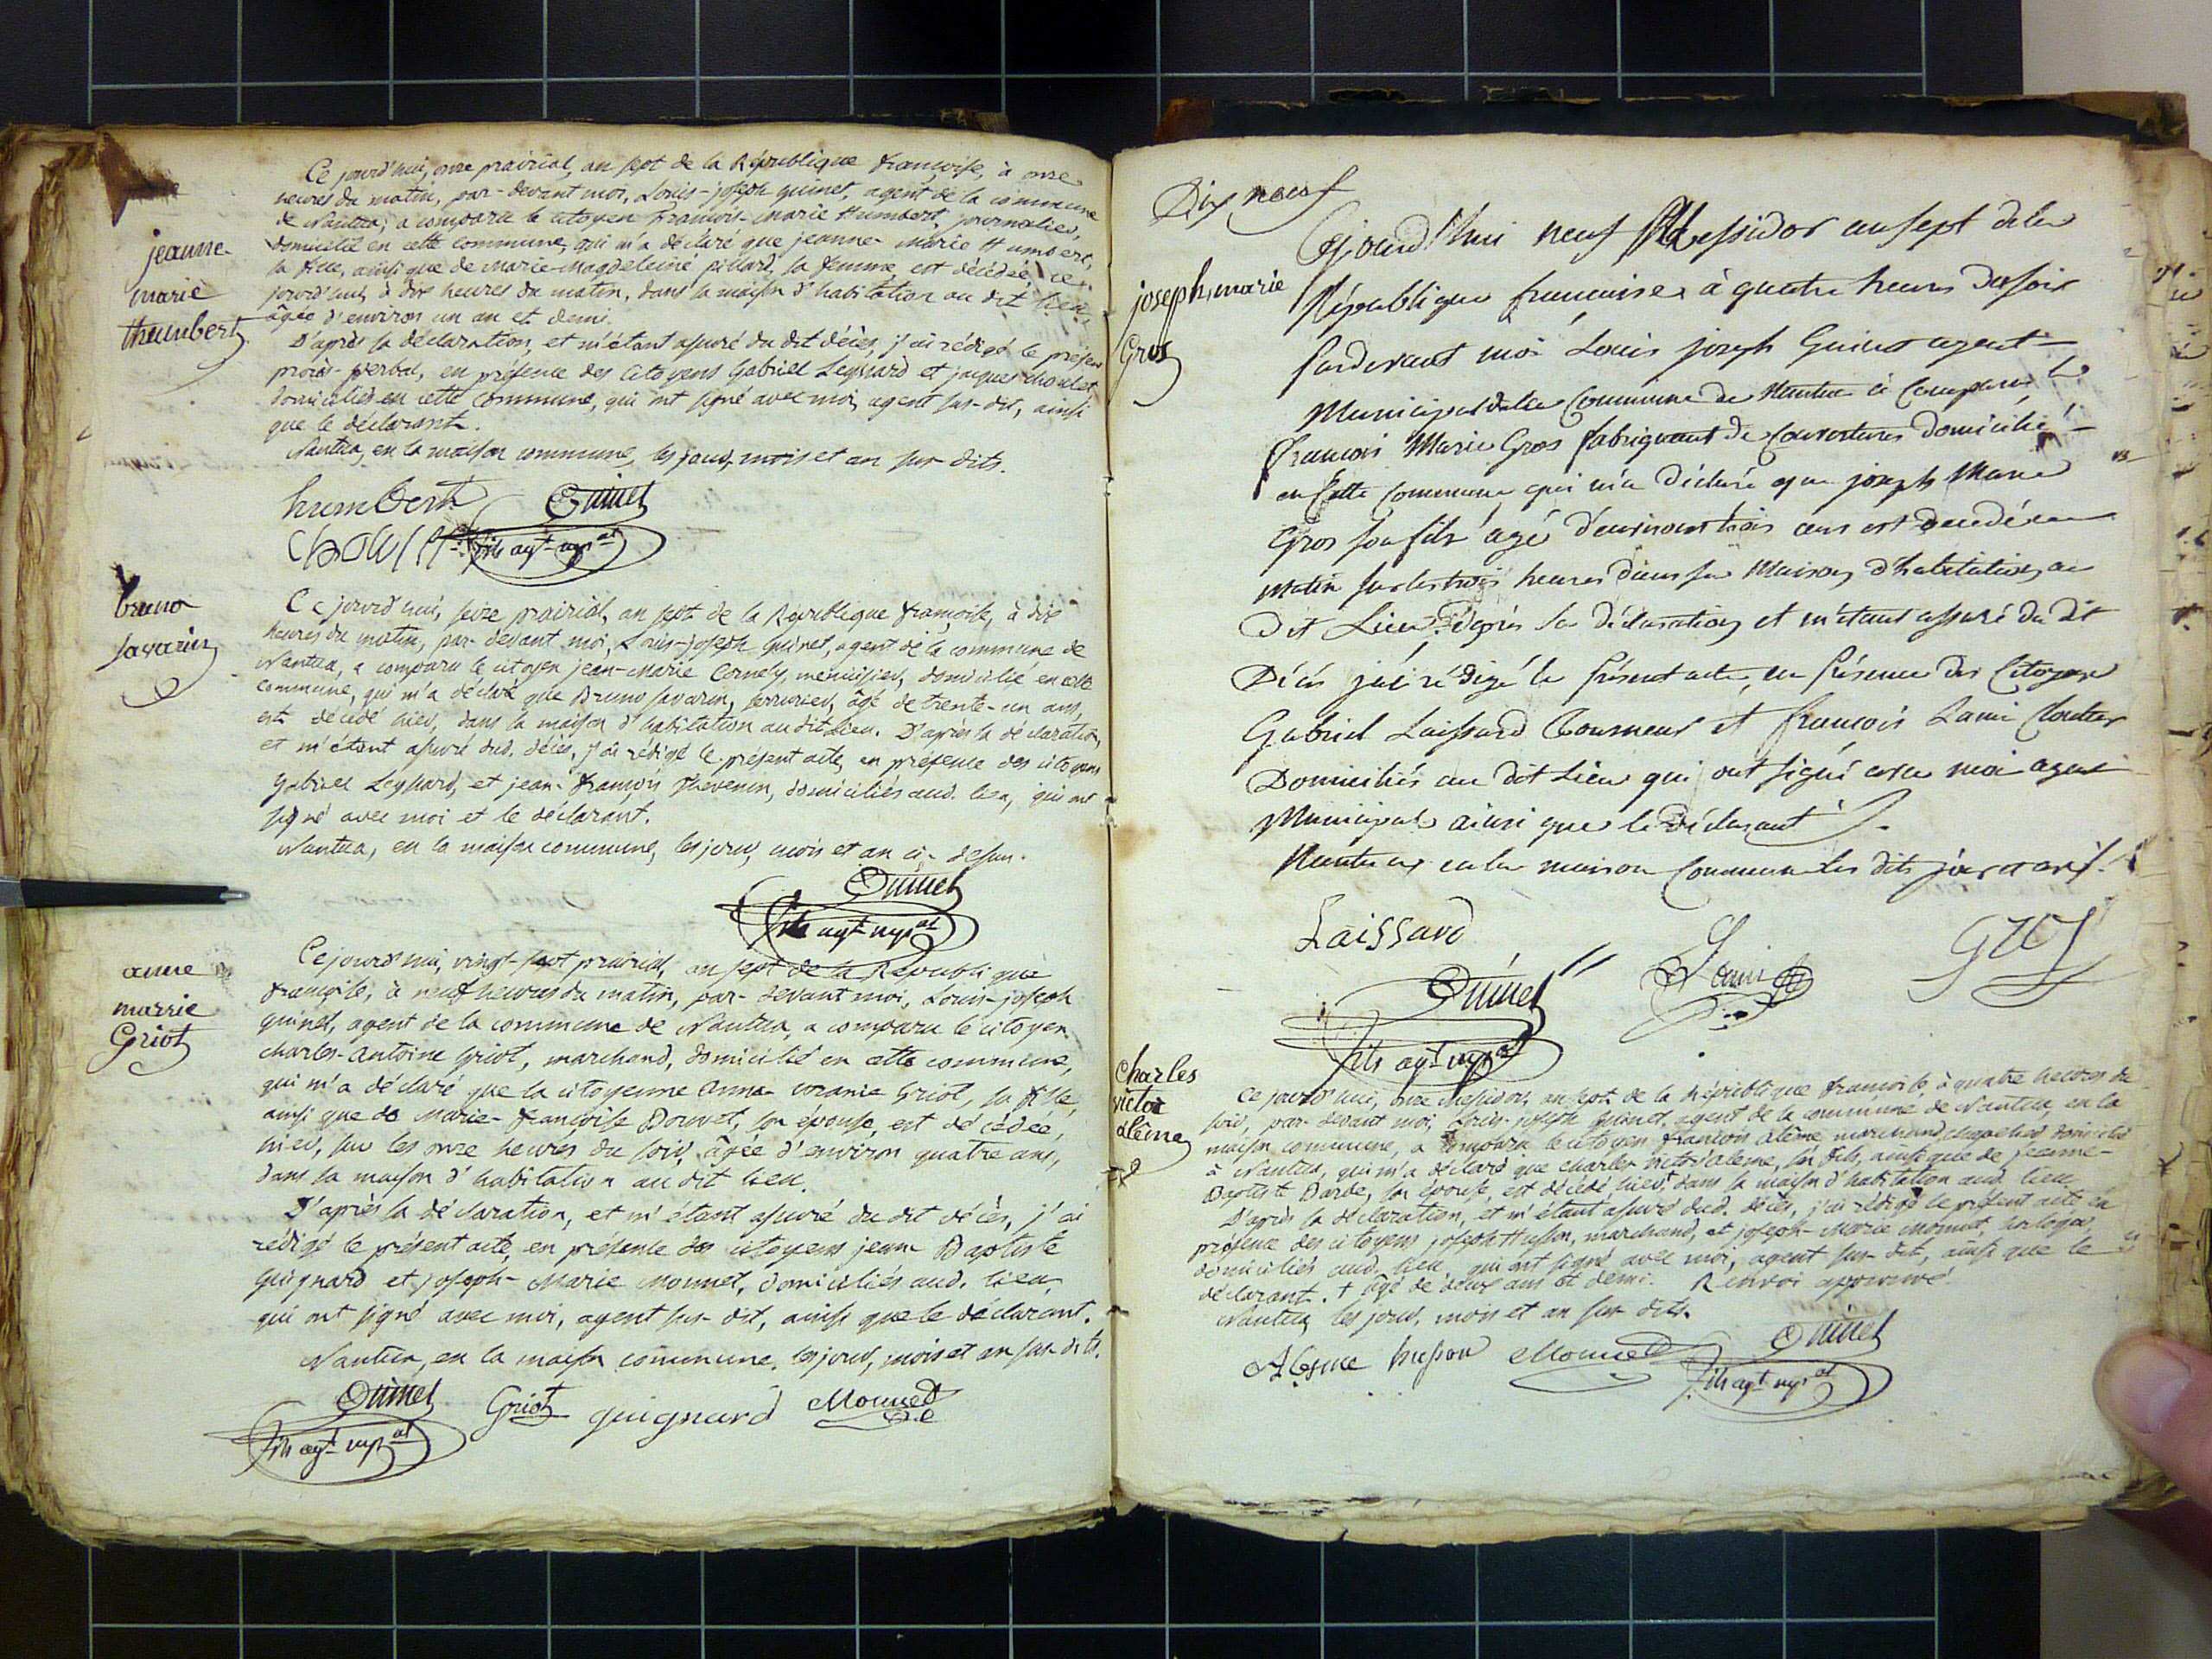 jeanne
marie
thumbert
Ce jourd'hui, onze prairial, an sept de la République françoise, à onze
heures du matin, par-devant moi, Louis-joseph quinet, agent de la commune
de Nantua, a comparu le citoyen françois-marie Humbert, journalier,
domicilié en cette commune, qui m'a déclaré que jeanne-marie Humbert,
sa fille, ainsi que de marie-magdeleine pillard, sa femme, est décédée, ce
jourd'hui, à dix heures du matin, dans sa maison d'habitation au dit lieu,
âgée d'environ un an et demi.
D'après sa déclaration, et m'étant assuré du dit décès, j'ai rédigé le présent
procès-verbal, en présence des citoyens Gabriel Leyssard et jacques choulet,
domiciliés en cette commune, qui ont signé avec moi, agent sus-dit, ainsi
que le déclarant.
Nantua, en la maison commune, les jour, mois et an sus-dits.
humbert Quinet
fils agt mpal
bruno
savarin
Ce jourd'hui, seize prairial, an sept de la République françoise, à dix
heures du matin, par-devant moi, Louis-joseph quinet, agent de la commune de
Nantua, a comparu le citoyen jean-marie Cornely, menuisier, domicilié en cette
commune, qui m'a déclaré que Bruno savarin, serrurier, âgé de trente-un ans,
est décédé hier, dans la maison d'habitation au dit lieu. D'après sa déclaration,
et m'étant assuré dud. décès, j'ai rédigé le présent acte, en présence des citoyens
gabriel Leyssard, et jean-françois Thevenin, domiciliés aud. lieu, qui ont
signé avec moi et le déclarant.
Nantua, en la maison commune, les jour, mois et an ci-dessus.
Quinet
fils agt mpal
anne
marrie
Griot
Ce jourd'hui, vingt-sept prairial, an sept de la République
françoise, à neuf heures du matin, par-devant moi, Louis-joseph
quinet, agent de la commune de Nantua, a comparu le citoyen
charles-antoine Griot, marchand, domicilié en cette commune,
qui m'a déclaré que la citoyenne anne Griot, sa fille,
ainsi que de Marie-françoise Bouvet, son épouse, est décédée,
hier, sur les onze heures du soir, âgée d'environ quatre ans,
dans sa maison d'habitation au dit lieu.
D'après sa déclaration, et m'étant assuré du dit décès, j'ai
rédigé le présent acte, en présence des citoyens jean Baptiste
guignard et joseph-Marie Monnet, domiciliés aud. lieu,
qui ont signé avec moi, agent sus-dit, ainsi que le déclarant.
Nantua, en la maison commune, les jour, mois et an sus-dits.
Quinet Griot guignard Monnet
fils agt mpal
Dix neuf
joseph marie
Gros
Cejourd'hui neuf Messidor an sept dela
République françaises à quatre heures du soir
pardevant moi Louis joseph Guinet agent
Municipal dela Commune de Nantua à Comparu le
François Marie Gros fabriquant de Couvertures domicilié
en Cette Commune qui m'a Déclaré que joseph Marie
Gros son fils agé d'environ trois ans est décédé ce
matin sur les trois heures dans sa Maison d'habitation au
Dit Lieu. D'après sa Déclaration et m'étant assuré du dit
Décés j'ai rédigé le présent acte, en présence des Citoyens
Gabriel Laissard Tourneur et françois Lami Cloutier
Domiciliés au dit Lieu qui ont signé avec moi agent
Municipal ainsi que le Déclarant
Nantua en la maison Commune les dits jour et an
Laissard
Quinet Lami Gros
fils agt mpal
Charles
victor
alême
Ce jourd'hui, onze messidor, an sept de la République françoise, à quatre heures du
soir, par-devant moi, Louis-joseph Quinet, agent de la commune de Nantua, en la
maison commune, a comparu le citoyen françois alême, marchand chapelier domicilié
à Nantua, qui m'a déclaré que charles victor alême, son fils, ainsi que de jeanne-
Baptiste Barbe, son épouse, est décédé, hier, dans sa maison d'habitation aud. lieu
D'après sa déclaration, et m'étant assuré dud. décès, j'ai rédigé le présent acte, en
présence des citoyens joseph Husson, marchand, et joseph-marie monnet, horloger,
domiciliés aud. lieu, qui ont signé avec moi, agent sus-dit, ainsi que le
déclarant. † âgé de deux ans et demi. Renvoi approuvé.
Nantua, les jour, mois et an sus-dits.
Alesme husson Monnet Quinet
fils agt mpal